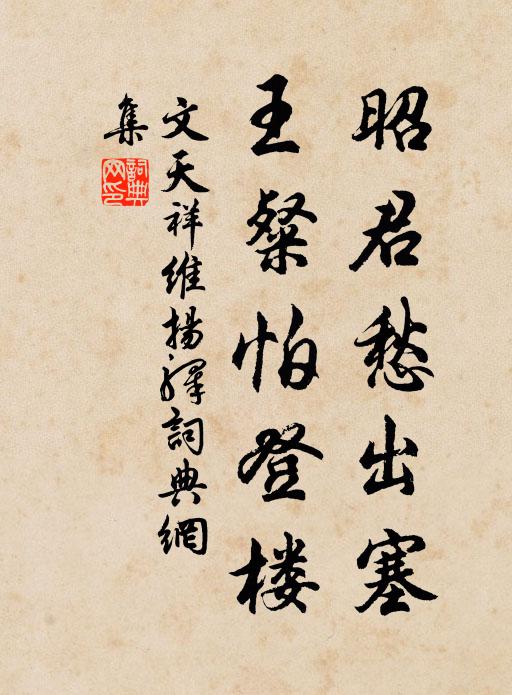 昭君愁出塞
王粲怕登楼
文天祥維揚驛詞典網
集
詞典網印